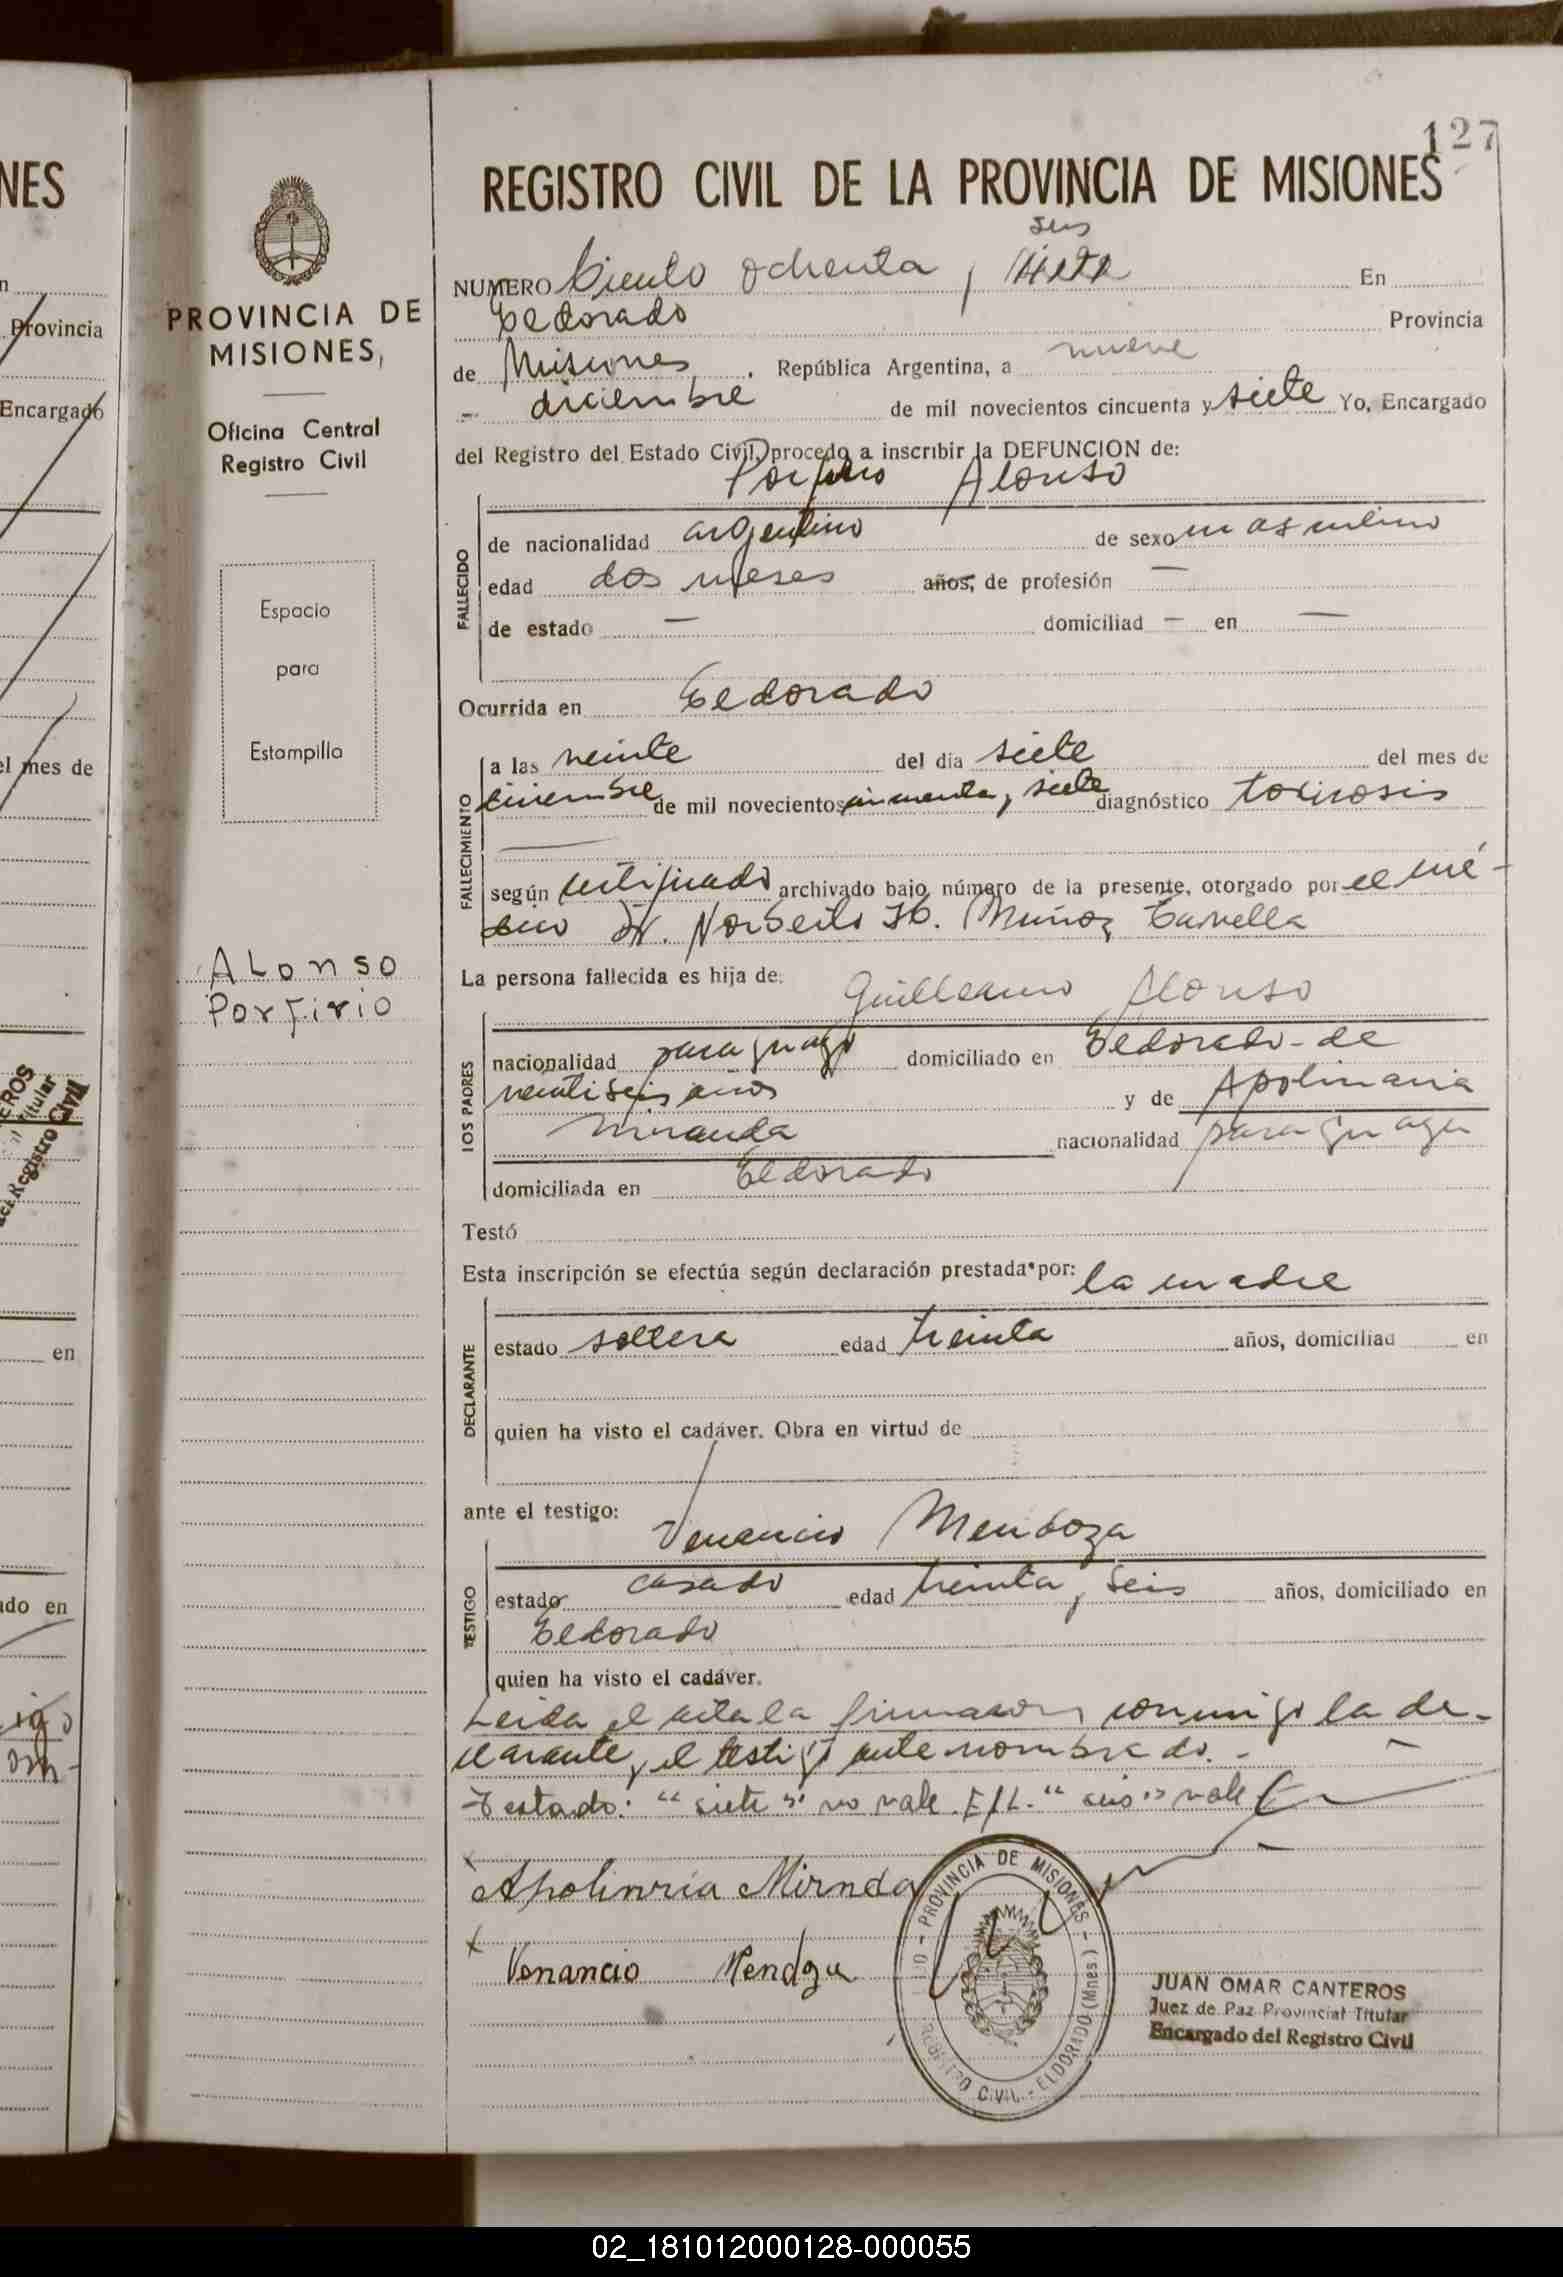 127
REGISTRO CIVIL DE LA PROVINCIA DE MISIONES
seis
NUMERO Ciento ochenta y siete En
Eldorado Provincia
de Misiones, República Argentina, a nueve
diciembre de mil novecientos cincuenta y siete Yo, Encargado
del Registro del Estado Civil, procedo a inscribir la DEFUNCION de:
Porfirio Alonso
FALLECIDO
de nacionalidad argentino de sexo masculino
edad dos meses años, de profesión —
de estado — domiciliad — en —
Ocurrida en Eldorado
FALLECIMIENTO
a las veinte del día siete del mes de
diciembre de mil novecientos cincuenta y siete diagnóstico toxicosis
según certificado archivado bajo número de la presente, otorgado por el mé-
dico Dr. Norberto H. Muñoz
La persona fallecida es hija de: Guillermo Alonso
LOS PADRES
nacionalidad paraguayo domiciliado en Eldorado - de
veintiseis años y de Apolinaria
Miranda nacionalidad paraguaya
domiciliada en Eldorado
Testó
Esta inscripción se efectúa según declaración prestada por: la madre
DECLARANTE
estado soltera edad treinta años, domiciliad en
quien ha visto el cadáver. Obra en virtud de
ante el testigo: Venancio Mendoza
TESTIGO
estado casado edad treinta y seis años, domiciliado en
Eldorado
quien ha visto el cadáver.
Leída el acta la firmaron conmigo la de-
clarante y el testigo ante nombrado. -
Testado: "siete" no vale. E/L. "seis" vale
x
Apolinria Mirnda
x
Venancio Mendoza
PROVINCIA DE MISIONES - REGISTRO CIVIL - ELDORADO (Mnes.)
JUAN OMAR CANTEROS
Juez de Paz Provincial Titular
Encargado del Registro Civil
PROVINCIA DE
MISIONES,
Oficina Central
Registro Civil
Espacio
para
Estampilla
ALonso
Porfirio
NES
n
Provincia
Encargado
el mes de
EROS
Titular
del Registro Civil
en
ado en
02_181012000128-000055